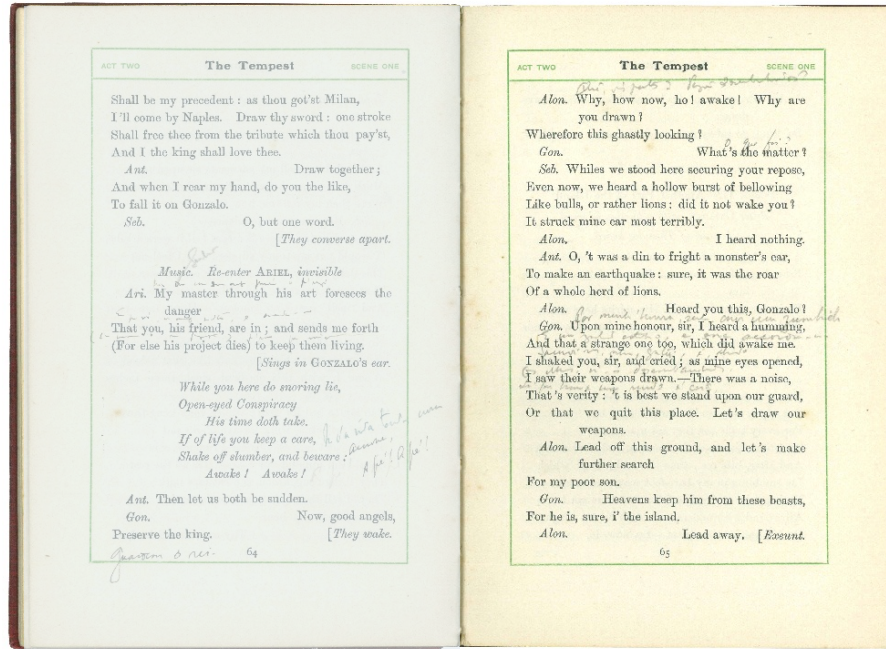 ACT TWO The Tempest SCENE ONE
Shall be my precedent : as thou got'st Milan,
I'll come by Naples. Draw thy sword : one stroke
Shall free thee from the tribute which thou pay'st,
And I the king shall love thee.
Ant. Draw together ;
And when I rear my hand, do you the like,
To fall it on Gonzalo.
Seb. O, but one word.
[They converse apart.
Music. Re-enter ARIEL, invisible
Ari. My master through his art foresees the
danger
That you, his friend, are in ; and sends me forth
(For else his project dies) to keep them living.
[Sings in GONZALO'S ear.
While you here do snoring lie,
Open-eyed Conspiracy
His time doth take.
If of life you keep a care,
Shake off slumber, and beware :
Awake ! Awake !
Ant. Then let us both be sudden.
Gon. Now, good angels,
Preserve the king. [They wake.
64
ACT TWO The Tempest SCENE ONE
Alon. Why, how now, ho ! awake ! Why are
you drawn ?
Wherefore this ghastly looking ?
Gon. What's the matter ?
Seb. Whiles we stood here securing your repose,
Even now, we heard a hollow burst of bellowing
Like bulls, or rather lions : did it not wake you ?
It struck mine ear most terribly.
Alon. I heard nothing.
Ant. O, 't was a din to fright a monster's ear,
To make an earthquake : sure, it was the roar
Of a whole herd of lions.
Alon. Heard you this, Gonzalo ?
Gon. Upon mine honour, sir, I heard a humming,
And that a strange one too, which did awake me.
I shaked you, sir, and cried ; as mine eyes opened,
I saw their weapons drawn.—There was a noise,
That's verity : 't is best we stand upon our guard,
Or that we quit this place. Let's draw our
weapons.
Alon. Lead off this ground, and let's make
further search
For my poor son.
Gon. Heavens keep him from these beasts,
For he is, sure, i' the island.
Alon. Lead away. [Exeunt.
65